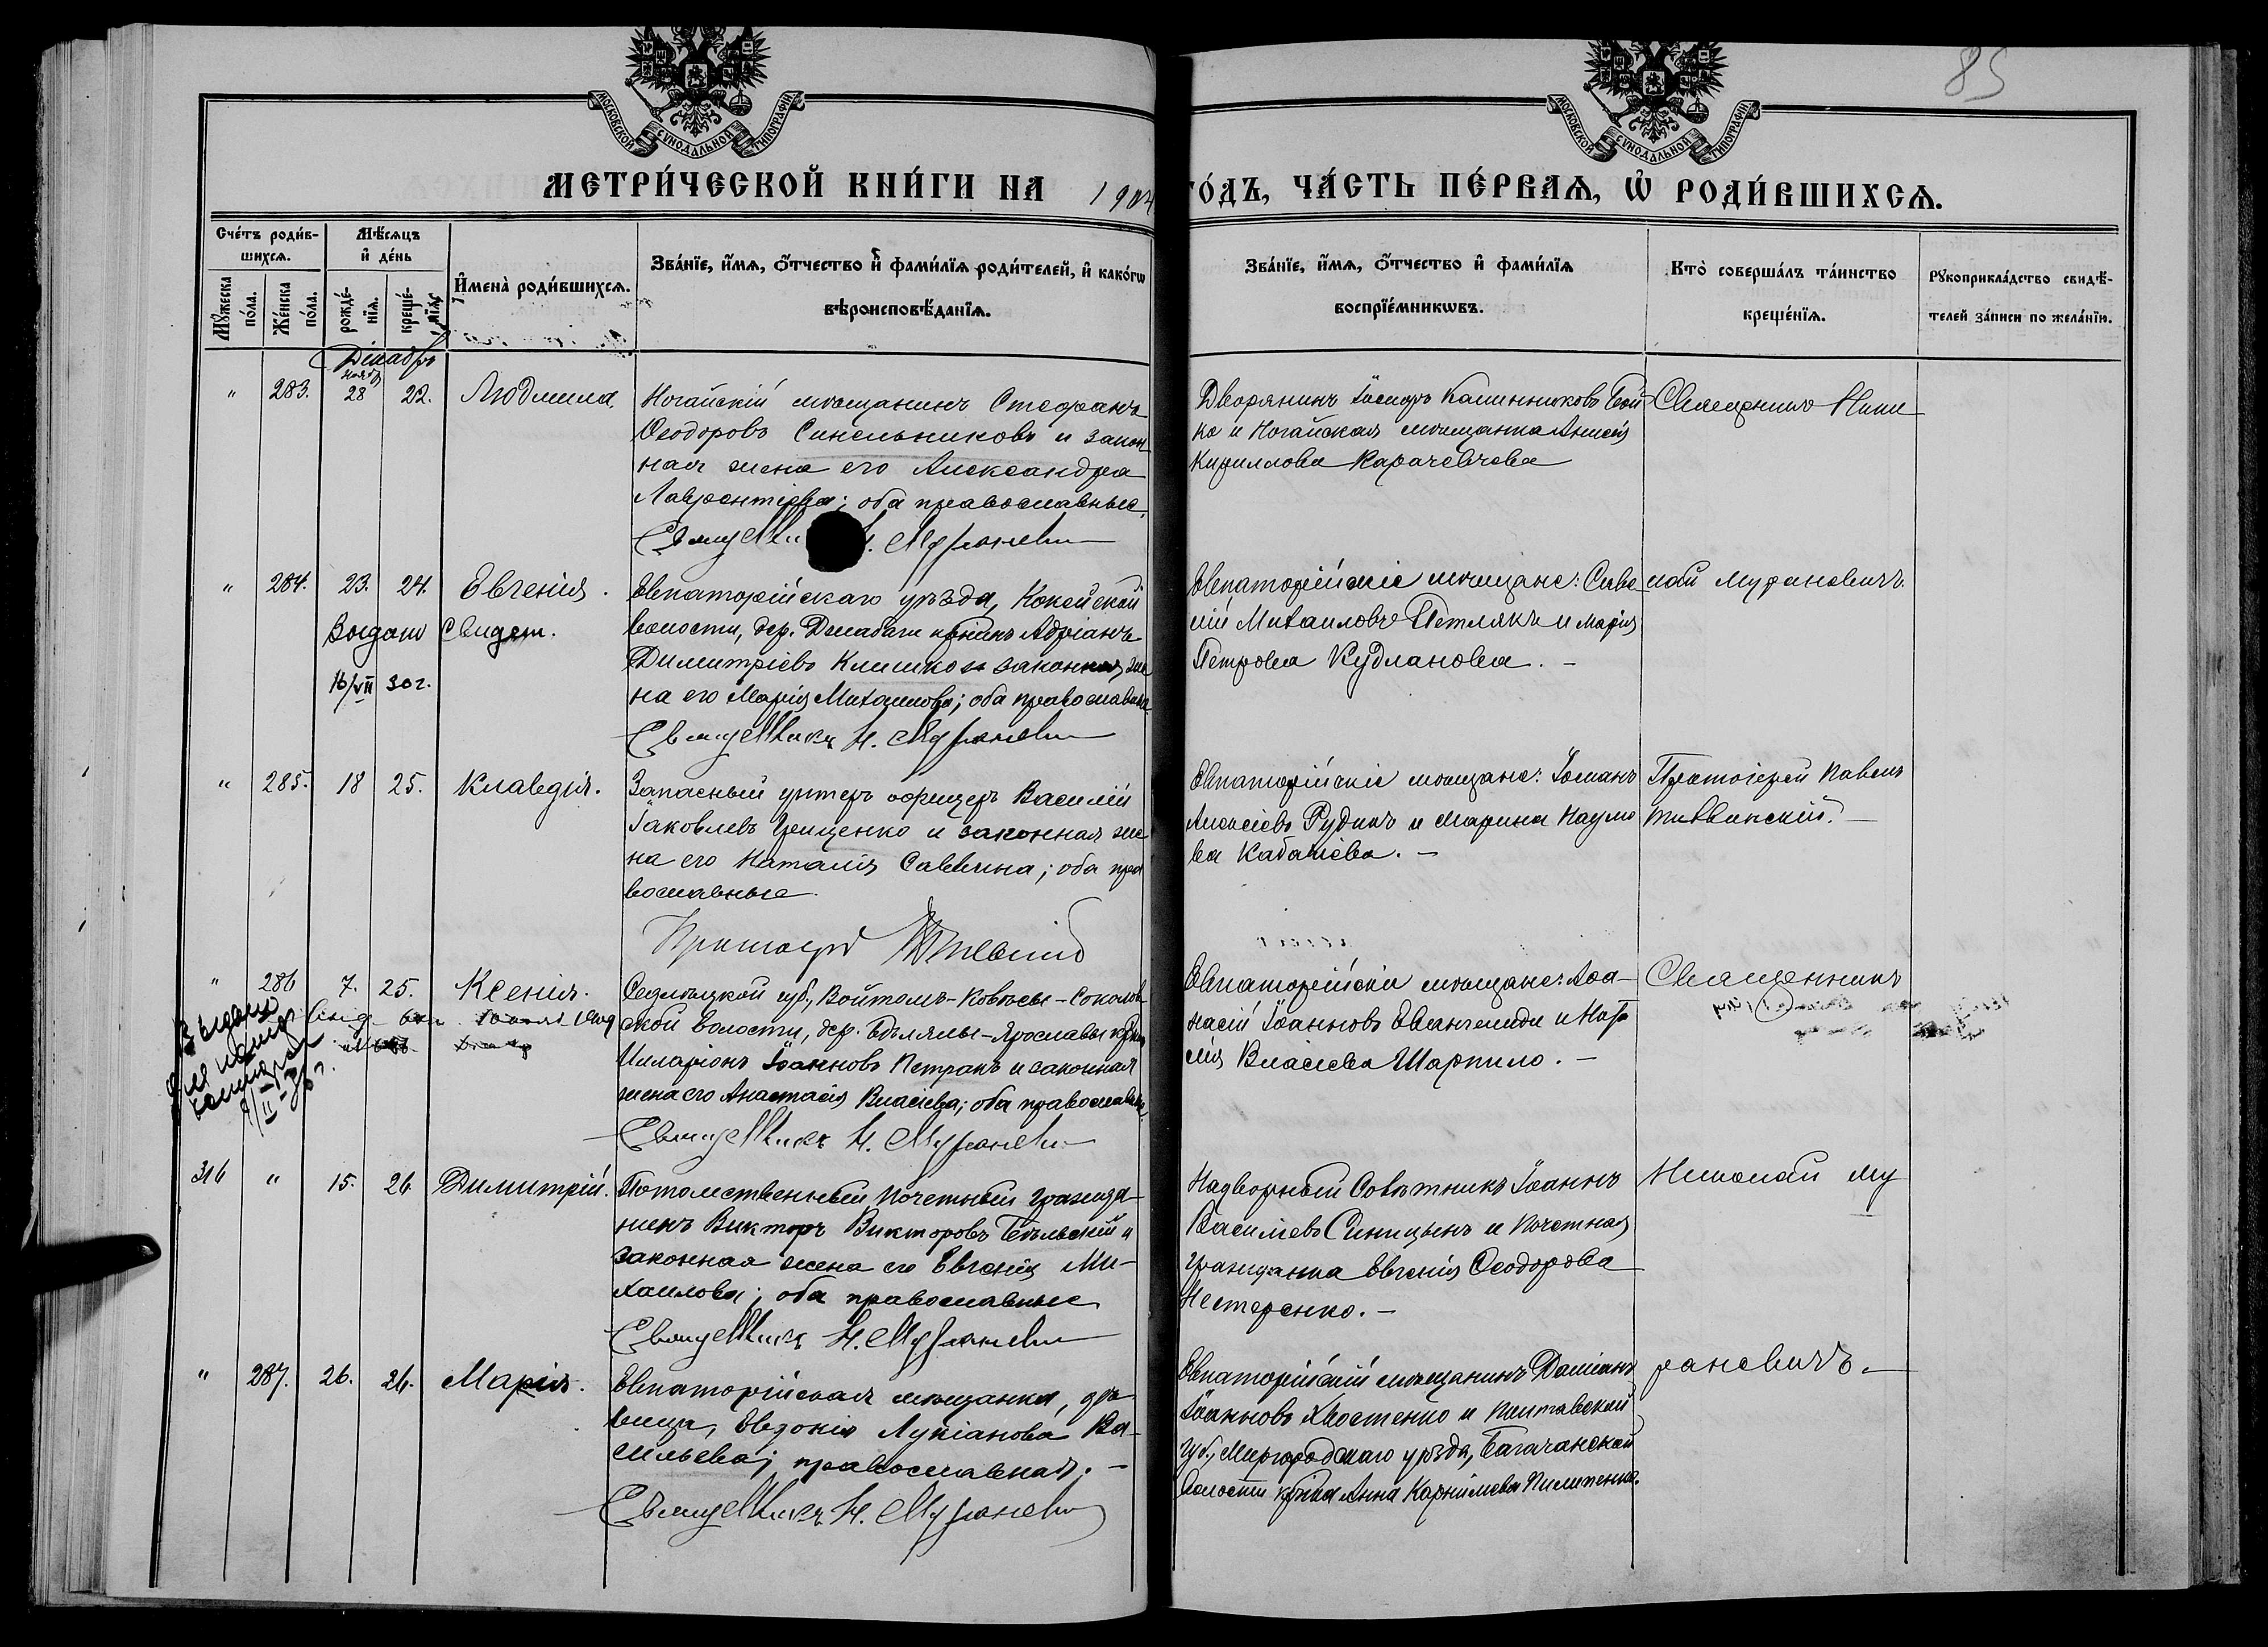 85
МОСКОВСКОЙ СѴНОДАЛЬНОЙ ТИПОГРАФІИ
МОСКОВСКОЙ СѴНОДАЛЬНОЙ ТИПОГРАФІИ
МЕТРИ́ЧЕСКОЙ КНИ́ГИ НА 1904
ГО́ДЪ, ЧА́СТЬ ПЕ́РВАѦ, Ѡ҆ РОДИ́ВШИХСѦ.
Сче́тъ роди́в-
шихсѧ.
Мꙋжеска по́ла.
Же́нска по́ла.
Мѣ́сѧцъ
и҆ де́нь
рожде́-
нїѧ.
креще́-
нїѧ.
И҆мена̀ роди́вшихсѧ.
Зва́нїе, и҆́мѧ, ѻ҆́тчество и҆ фами́лїѧ роди́телей, и҆ како́гѡ
вѣроисповѣ́данїѧ.
Зва́нїе, и҆́мѧ, ѻ҆́тчество и҆ фами́лїѧ
воспрїе́мникѡвъ.
Кто̀ соверша́лъ та́инство
креще́нїѧ.
Рꙋкоприкла́дство свидѣ́-
телей за́писи по жела́нїю.
Декабрь
нояб.
" 283. 28 22. Людмила.
Ногайскій мѣщанинъ Стефанъ
Ѳеодоровъ Синельниковъ и закон
ная жена его Александра
Лаврентіева; оба православные.
Н. Муранович
Дворянинъ Іосифъ Калинниковъ Бой
ко и Ногайская мѣщанка Анисія
Кириллова Карачевцева
Священникъ Нико
" 284. 23. 24. Евгенія.
Выдано свидет.
16/VII 30 г.
Евпаторійскаго уѣзда, Кокейской
волости, дер. Джабаги кр-нинъ Адріанъ
Димитріевъ Климко и законная же
на его Марія Михаилова; оба православные
Священникъ Н. Муранович
Евпаторійскіе мѣщане: Саве
лій Михаиловъ Петлякъ и Марія
Петрова Кудланова. –
лай Мурановичъ.
" 285. 18 25. Клавдія.
Запасный унтеръ офицеръ Василій
Іаковлевъ Грищенко и законная же
на его Наталія Саввична; оба пра
вославные.
Протоіерей
Евпаторійскіе мѣщане: Романъ
Алексіевъ Рудикъ и Марина Наумо
ва Кабаніева. –
Протоіерей Павелъ
Тихвинскій. –
" 286 7. 25. Ксенія.
Выдано
для
Сѣдлецкой губ., Войтомъ-Ковесы-Соколов
ской волости, дер. Бѣляны-Ярославы кр-нинъ
Иларіонъ Іоанновъ Петракъ и законная
жена его Анастасія Власіева; оба православные
Священникъ Н. Муранович
Евпаторійскіе мѣщане: Аѳа-
насій Іоанновъ Евангелиди и Ната
лія Власіева Шарпило. –
Священникъ
316 " 15. 26 Димитрій.
Потомственный почетный гражда-
нинъ Викторъ Викторовъ Бѣльскій и
законная жена его Евгенія Ми-
хаилова; оба православные
Священникъ Н. Муранович
Надворный Совѣтникъ Іоаннъ
Василіевъ Синицынъ и почетная
гражданка Евгенія Ѳеодорова
Нестеренко. –
Николай Му
" 287. 26. 26. Марія.
Евпаторійская мѣщанка, дѣ-
вица, Евдокія Лукіанова Ва-
сильева; православная. –
Священникъ Н. Муранович
Евпаторійскій мѣщанинъ Даміанъ
Іоанновъ Хвостенко и Полтавской
губ., Миргородскаго уѣзда, Багачанской
волости кр-нка Анна Корнилева Пилипенко.
рановичъ. –